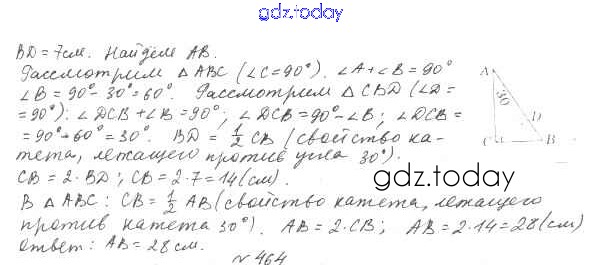 gdz.today
BD = 7 см. Найдём АВ.
Рассмотрим △ ABC (∠C=90°). ∠A+∠B = 90°
∠B = 90° - 30° = 60°. Рассмотрим △ CBD (∠D =
= 90°): ∠DCB + ∠B = 90°; ∠DCB = 90° - ∠B; ∠DCB =
= 90° - 60° = 30°. BD = 1/2 CB (свойство ка-
тета, лежащего против угла 30°).
CB = 2 · BD; CB = 2 · 7 = 14 (см).
В △ ABC: CB = 1/2 AB (свойство катета, лежащего
против катета 30°). AB = 2 · CB; AB = 2 · 14 = 28 (см)
Ответ: AB = 28 см.
A
30
D
C
B
gdz.today
№ 464